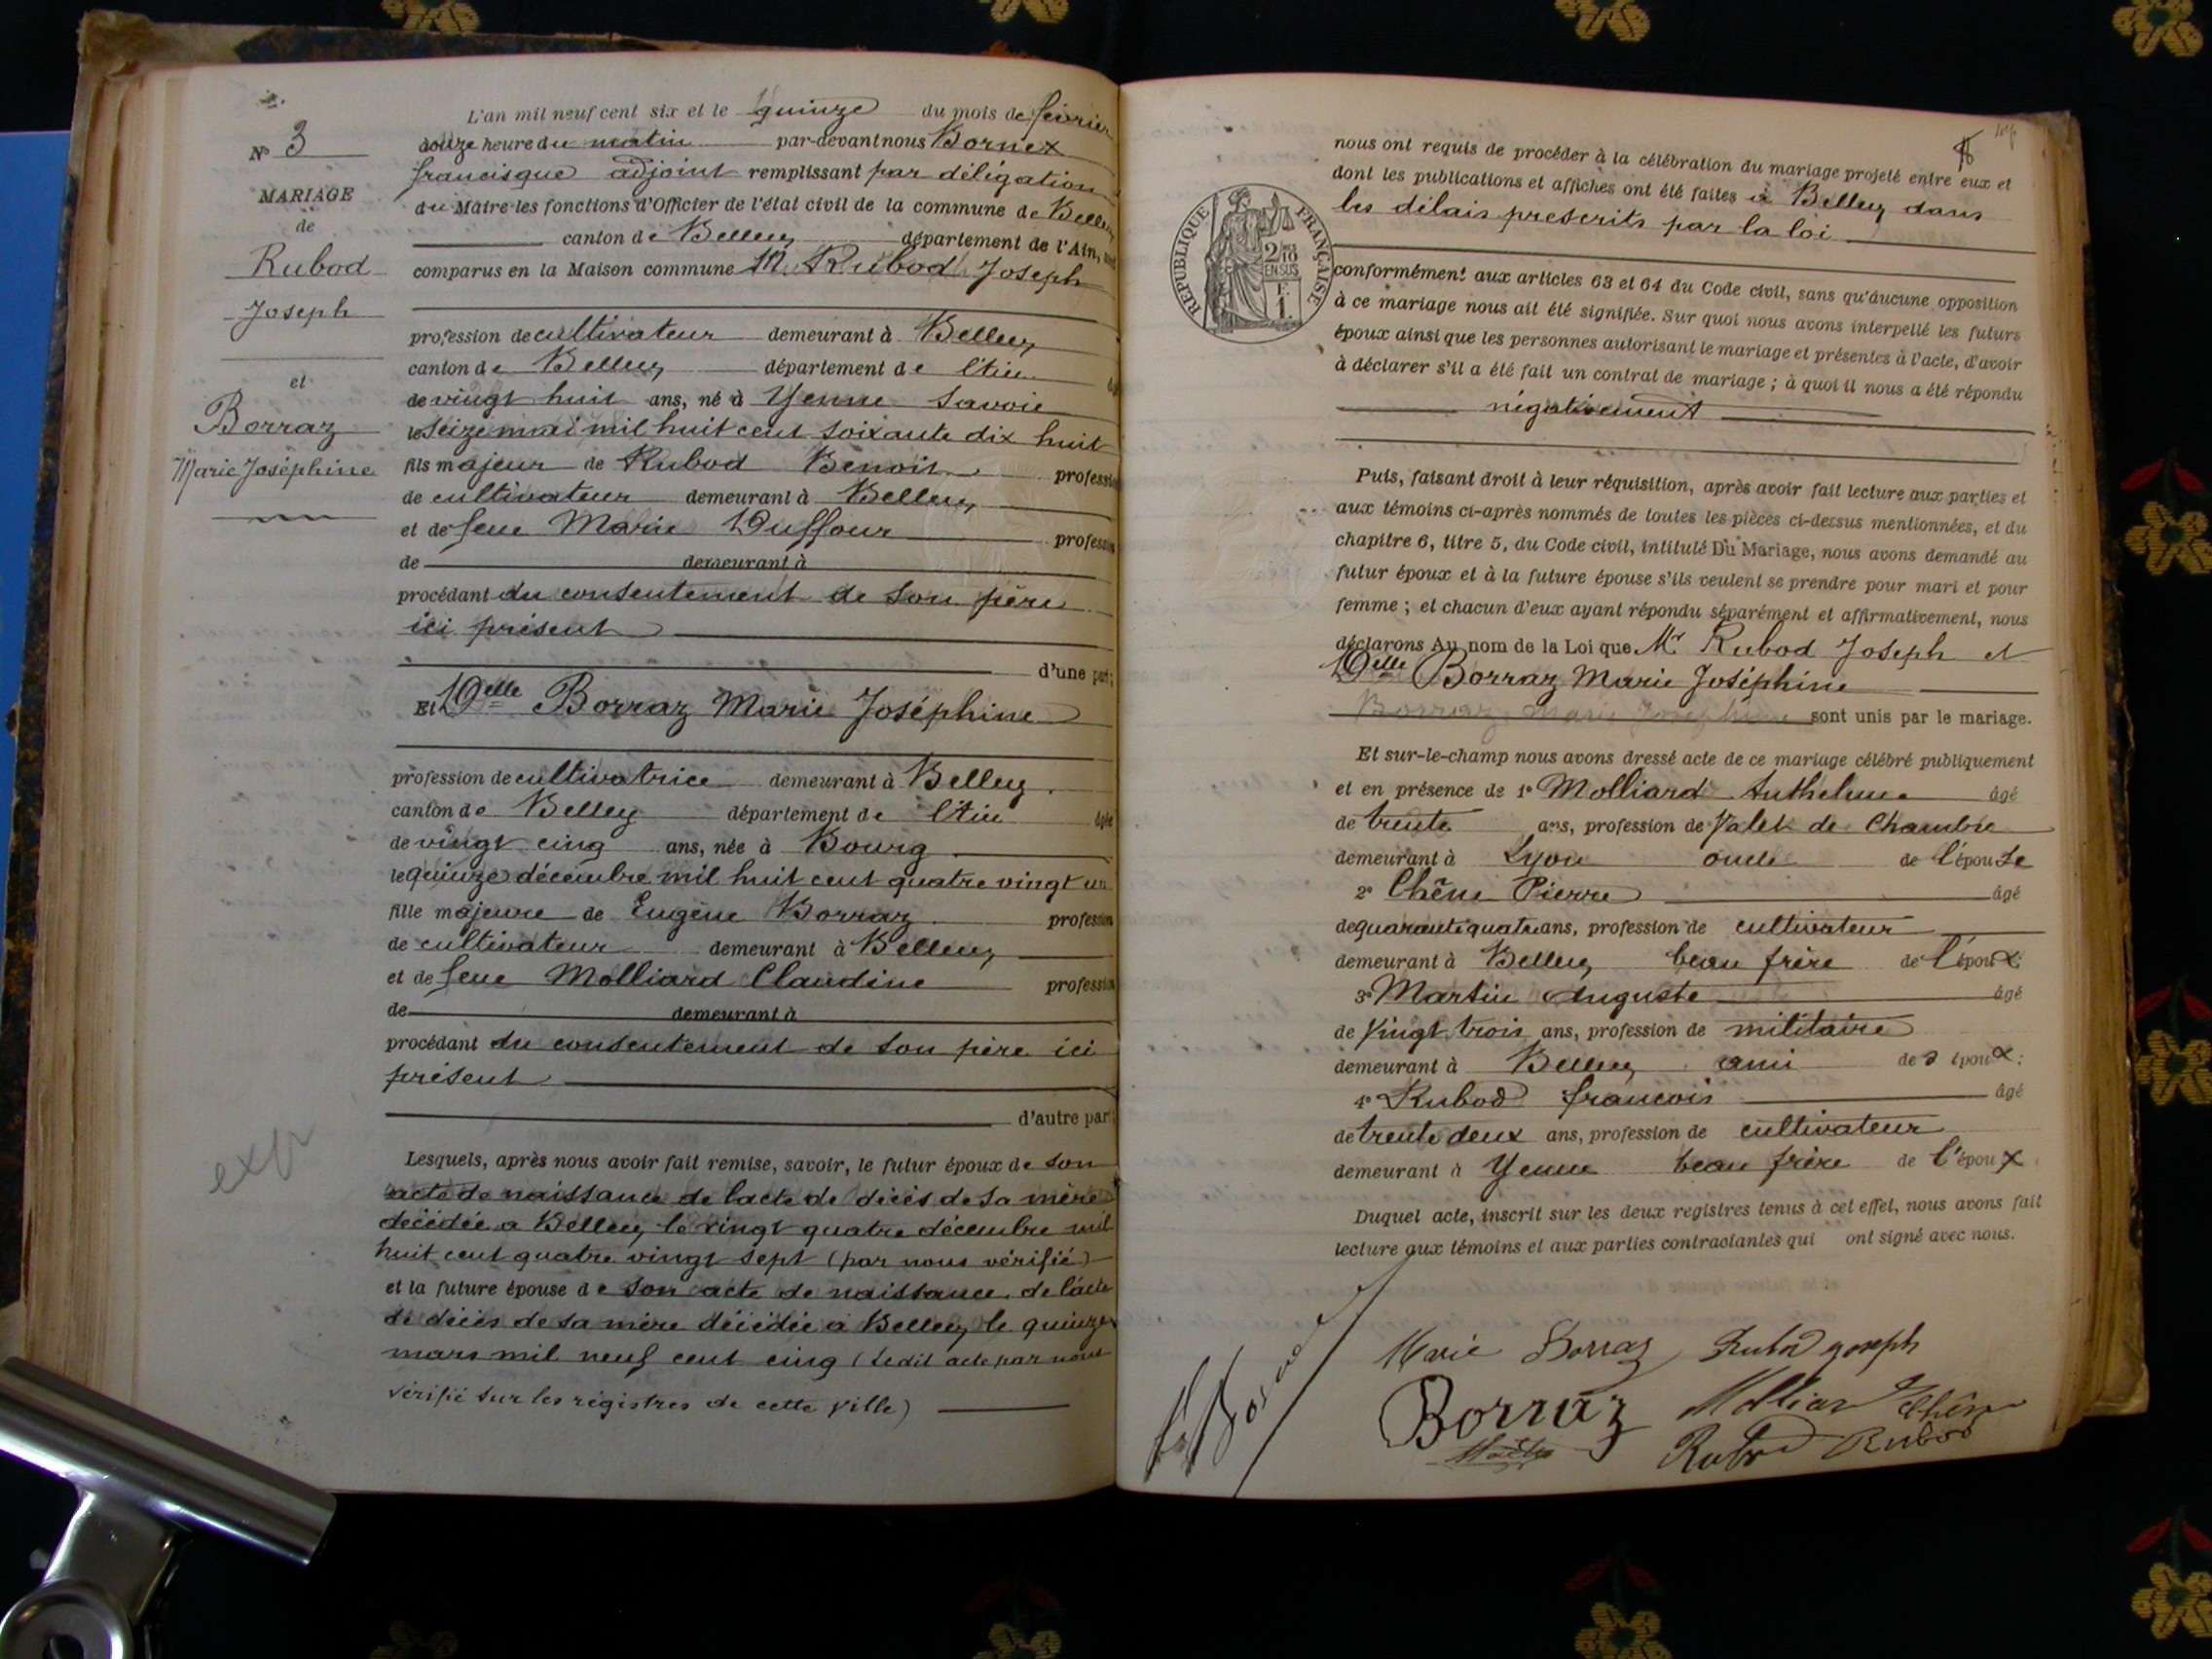 N° 3
MARIAGE
de
Rubod
Joseph
et
Borraz
Marie Joséphine
exp
L'an mil neuf cent six et le quinze du mois de février
heure du matin par-devant nous Bornex
francisque adjoint remplissant par délégation
du Maire les fonctions d'Officier de l'état civil de la commune de Belley
canton de Belley département de l'Ain,
comparus en la Maison commune M. Rubod Joseph
profession de cultivateur demeurant à Belley
canton de Belley département de l'Ain
de vingt huit ans, né à Yenne Savoie
le seize mai mil huit cent soixante dix huit
fils majeur de Rubod Benoit profession
de cultivateur demeurant à Belley
et de feue Marie Duffour profession
de demeurant à
procédant du consentement de son père
ici présent
d'une part;
Et Delle Borraz Marie Joséphine
profession de cultivatrice demeurant à Belley
canton de Belley département de l'Ain âgée
de vingt cinq ans, née à Bourg
le quinze décembre mil huit cent quatre vingt un
fille majeure de Eugène Borraz profession
de cultivateur demeurant à Belley
et de feue Molliard Claudine profession
de demeurant à
procédant du consentement de son père ici
présent
d'autre part
Lesquels, après nous avoir fait remise, savoir, le futur époux de son
acte de naissance de l'acte de décès de sa mère
décédée a Belley le vingt quatre décembre mil
huit cent quatre vingt sept (par nous vérifié)
et la future épouse de son acte de naissance, de l'acte
de décès de sa mère décédée à Belley le quinze
mars mil neuf cent cinq (ledit acte par nous
vérifié sur les régistres de cette ville)
nous ont requis de procéder à la célébration du mariage projeté entre eux et
dont les publications et affiches ont été faites à Belley dans
les délais prescrits par la loi
RÉPUBLIQUE FRANÇAISE
2/10 EN SUS
F. 1.
conformément aux articles 63 et 64 du Code civil, sans qu'aucune opposition
à ce mariage nous ait été signifiée. Sur quoi nous avons interpellé les futurs
époux ainsi que les personnes autorisant le mariage et présentes à l'acte, d'avoir
à déclarer s'il a été fait un contrat de mariage; à quoi il nous a été répondu
négativement
Puis, faisant droit à leur réquisition, après avoir fait lecture aux parties et
aux témoins ci-après nommés de toutes les pièces ci-dessus mentionnées, et du
chapitre 6, titre 5, du Code civil, intitulé Du Mariage, nous avons demandé au
futur époux et à la future épouse s'ils veulent se prendre pour mari et pour
femme; et chacun d'eux ayant répondu séparément et affirmativement, nous
déclarons Au nom de la Loi que Mr Rubod Joseph et
Delle Borraz Marie Joséphine
Borraz Marie Joséphine sont unis par le mariage.
Et sur-le-champ nous avons dressé acte de ce mariage célébré publiquement
et en présence de 1° Molliard Anthelme âgé
de trente ans, profession de Valet de Chambre
demeurant à Lyon oncle de l'épouse
2° Chêne Pierre âgé
de quarante quatre ans, profession de cultivateur
demeurant à Belley beau frère de l'époux
3° Martin Auguste âgé
de vingt trois ans, profession de militaire
demeurant à Belley ami des époux:
4° Rubod francois âgé
de trente deux ans, profession de cultivateur
demeurant à Yenne beau frère de l'époux
Duquel acte, inscrit sur les deux registres tenus à cet effet, nous avons fait
lecture aux témoins et aux parties contractantes qui ont signé avec nous.
Marie Borraz Rubod joseph
Borraz Molliard Chêne
Rubod Rubod